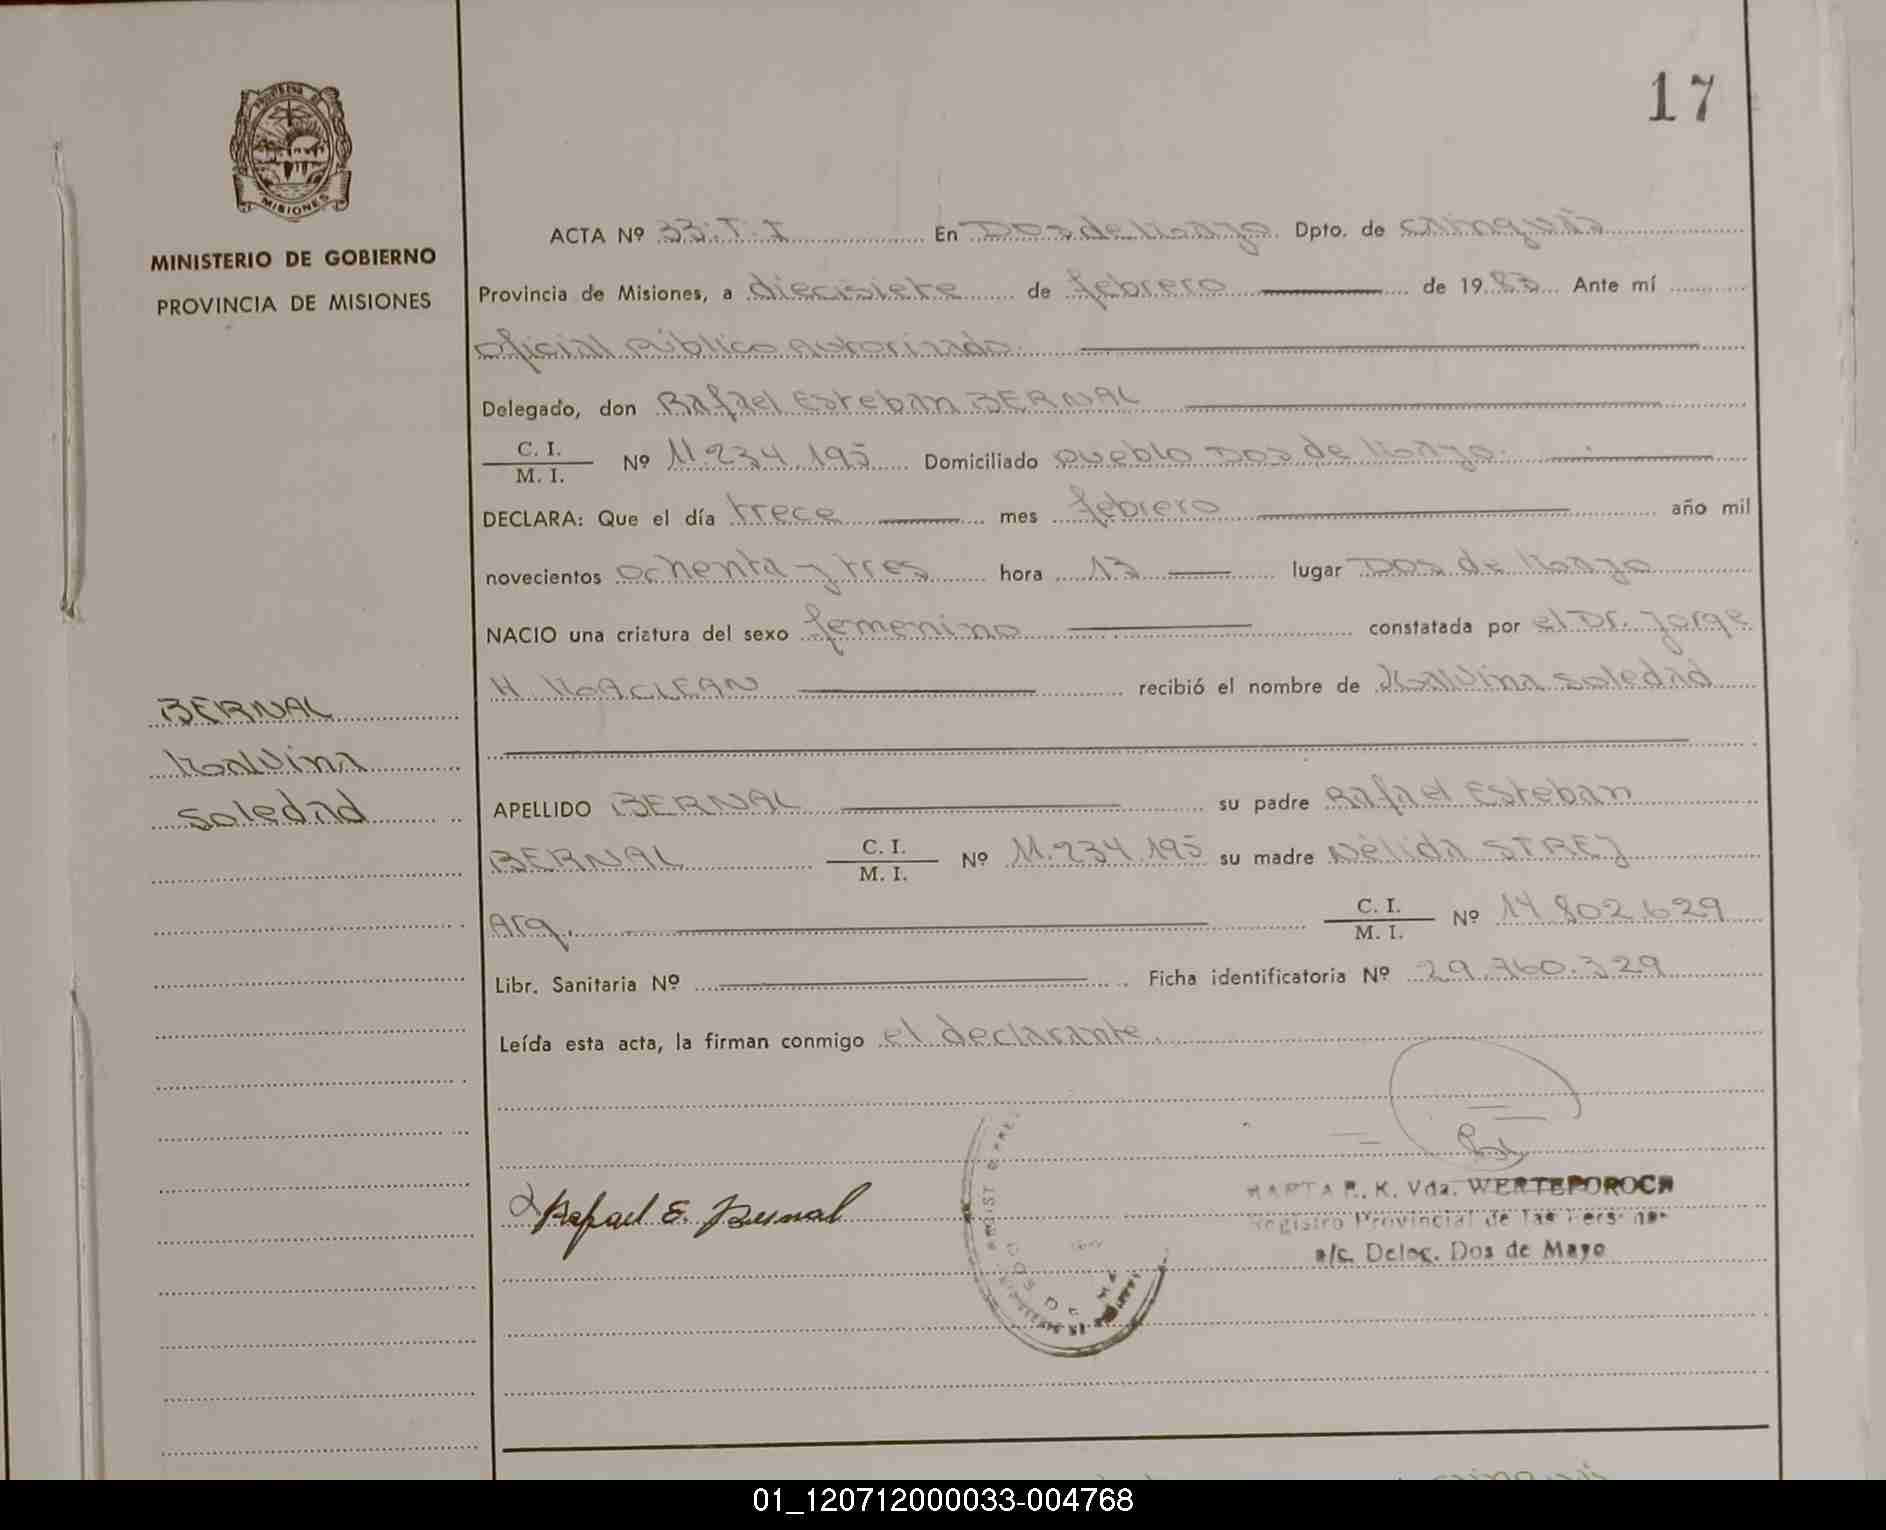 17
PROVINCIA DE
MISIONES
MINISTERIO DE GOBIERNO
PROVINCIA DE MISIONES
ACTA Nº 33.T.I En Dos de Mayo Dpto. de Cainguás
Provincia de Misiones, a diecisiete de febrero de 1983 Ante mí
oficial público autorizado
Delegado, don Rafael Esteban BERNAL
C. I.
M. I. Nº 11.234.195 Domiciliado pueblo Dos de Mayo.
DECLARA: Que el día trece mes febrero año mil
novecientos ochenta y tres hora 13 lugar Dos de Mayo
NACIO una criatura del sexo femenino constatada por el Dr. Jorge
H MACLEAN recibió el nombre de Malvina Soledad
BERNAL
Malvina
Soledad
APELLIDO BERNAL su padre Rafael Esteban
BERNAL C. I.
M. I. Nº 11.234.195 su madre Nélida STREJ
Arg. C. I.
M. I. Nº 14.802.629
Libr. Sanitaria Nº Ficha identificatoria Nº 29.760.329
Leída esta acta, la firman conmigo el declarante.
Rafael E. Bernal
DOS DE MA
MARTA R. K. Vda. WERTEPOROCH
Registro Provincial de las Personas
a/c. Deleg. Dos de Mayo
01_120712000033-004768